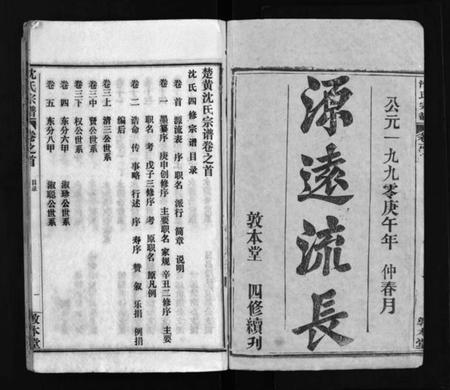 公元一九九零庚午年 仲春月
源遠流長
敦本堂 四修續刊
楚黄沈氏宗谱卷之首
沈氏四修宗谱目录
卷首 源流表 序 职名 派行 简章 说明
卷一 墨纂序 庚申创修序 主要职名 家规 辛丑二修序 主要
职名 考 戊子三修序 考 原职名 原凡例
卷二 诰命 传 事略 行述 序 寿序 赞 叙 乐捐 例捐
编后
卷三上 清三公世系
卷三中 贤公世系
卷三下 权公世系
卷四 东分六甲 淑珍公世系
卷五 东分八甲 淑聪公世系
沈氏宗谱 卷之首 目录 一 敦本堂
敦本堂